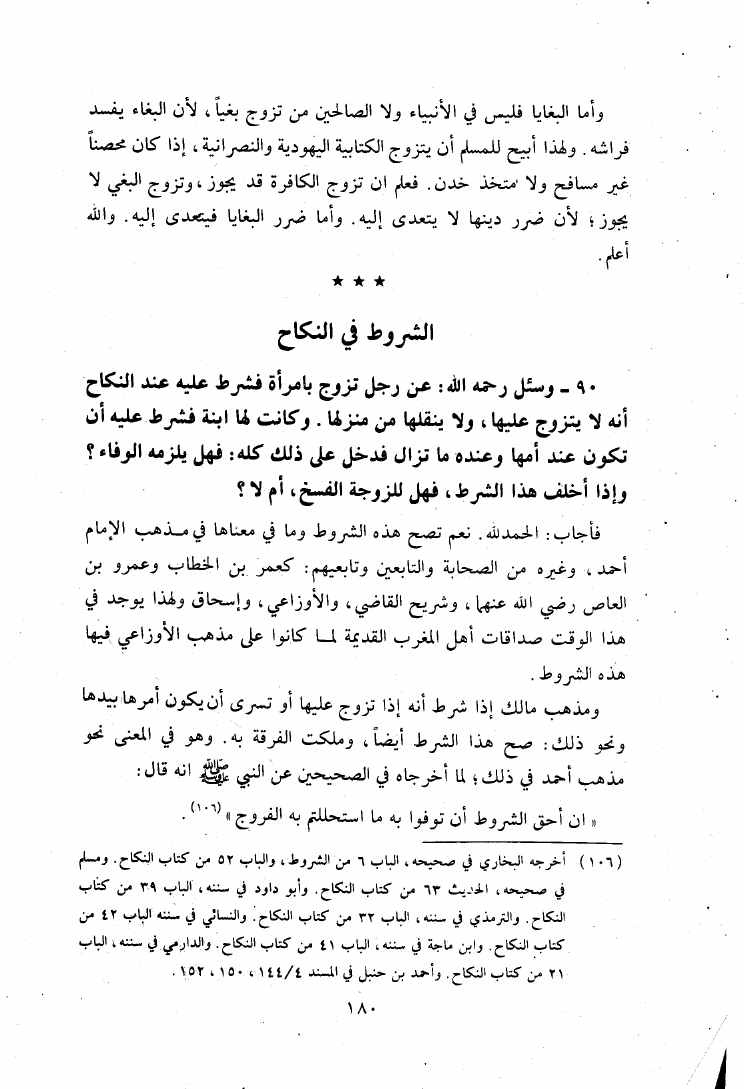 وأما البغايا فليس في الأنبياء ولا الصالحين من تزوج بغياً، لأن البغاء يفسد
فراشه. ولهذا أبيح للمسلم أن يتزوج الكتابية اليهودية والنصرانية، إذا كان محصناً
غير مسافح ولا متخذ خدن. فعلم ان تزوج الكافرة قد يجوز، وتزوج البغي لا
يجوز؛ لأن ضرر دينها لا يتعدى إليه. وأما ضرر البغايا فيتعدى إليه. والله
أعلم.
★ ★ ★
الشروط في النكاح
٩٠ ـ وسئل رحمه الله: عن رجل تزوج بامرأة فشرط عليه عند النكاح
أنه لا يتزوج عليها، ولا ينقلها من منزلها. وكانت لها ابنة فشرط عليه أن
تكون عند أمها وعنده ما تزال فدخل على ذلك كله: فهل يلزمه الوفاء؟
وإذا أخلف هذا الشرط، فهل للزوجة الفسخ، أم لا؟
فأجاب: الحمدلله. نعم تصح هذه الشروط وما في معناها في مذهب الإمام
أحمد، وغيره من الصحابة والتابعين وتابعيهم: كعمر بن الخطاب وعمرو بن
العاص رضي الله عنهما، وشريح القاضي، والأوزاعي، وإسحاق ولهذا يوجد في
هذا الوقت صداقات أهل المغرب القديمة لما كانوا على مذهب الأوزاعي فيها
هذه الشروط.
ومذهب مالك إذا شرط أنه إذا تزوج عليها أو تسرى أن يكون أمرها بيدها
ونحو ذلك: صح هذا الشرط أيضاً، وملكت الفرقة به. وهو في المعنى نحو
مذهب أحمد في ذلك؛ لما أخرجاه في الصحيحين عن النبي ﷺ انه قال:
« ان أحق الشروط أن توفوا به ما استحللتم به الفروج »(١٠٦).
(١٠٦) أخرجه البخاري في صحيحه، الباب ٦ من الشروط، والباب ٥٢ من كتاب النكاح. ومسلم
في صحيحه، الحديث ٦٣ من كتاب النكاح. وأبو داود في سننه، الباب ٣٩ من كتاب
النكاح. والترمذي في سننه، الباب ٣٢ من كتاب النكاح. والنسائي في سننه الباب ٤٢ من
كتاب النكاح. وابن ماجة في سننه، الباب ٤١ من كتاب النكاح. والدارمي في سننه، الباب
٢١ من كتاب النكاح. وأحمد بن حنبل في المسند ١٤٤/٤، ١٥٠، ١٥٢.
١٨٠